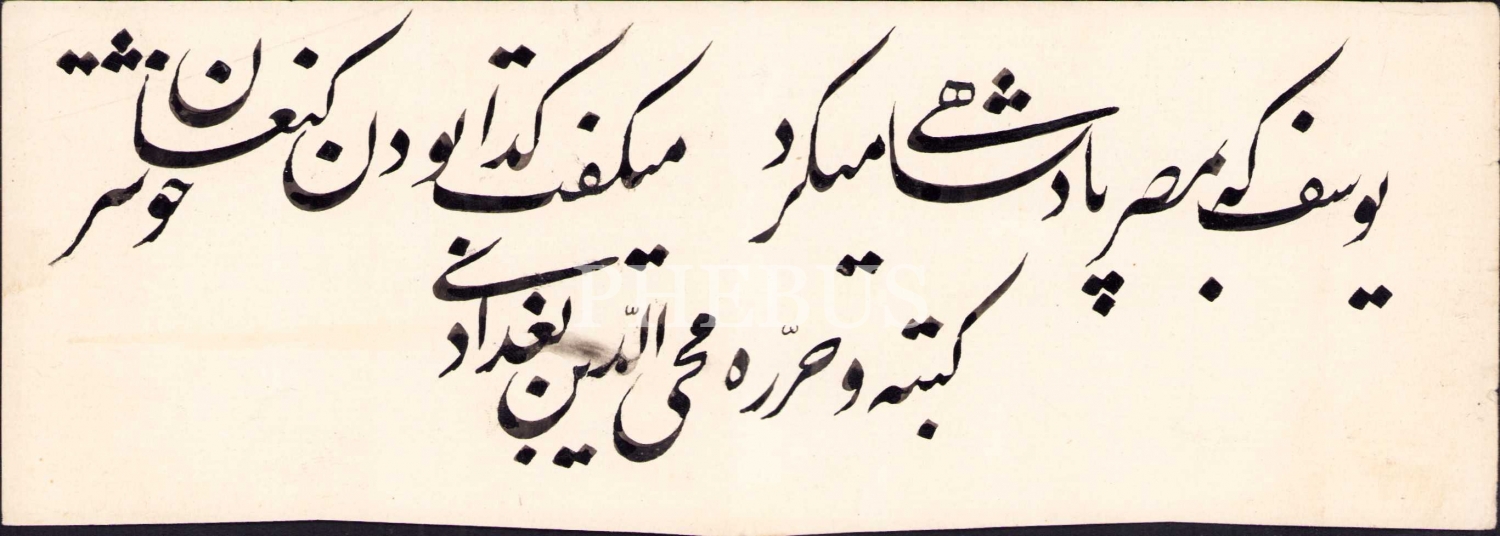 یوسف که بمصر پادشاهی میکرد میکفت کدا بودن کنعان خوشتر
کتبه و حرّره محی الدّین بغدادی
PHEBUS